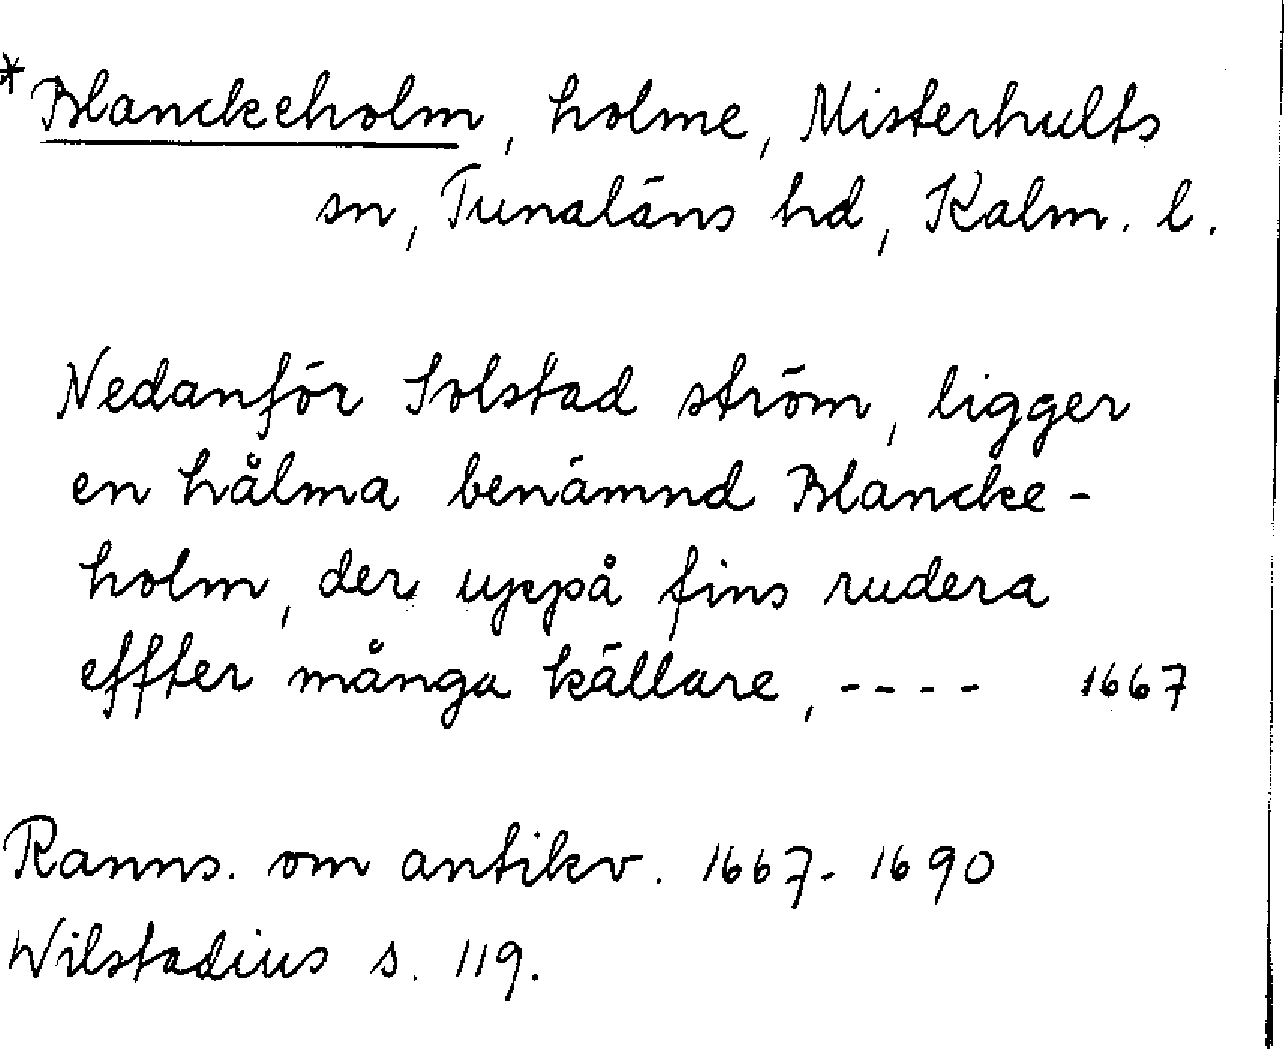 *Blanckeholm, holme, Misterhults
sn, Tunaläns hd, Kalm. l.
Nedanför Solstad ström, ligger
en hålma benämnd Blancke-
holm, der uppå fins rudera
effter många källare, ---- 1667
Ranns. om antikv. 1667-1690
Wilstadius s. 119.